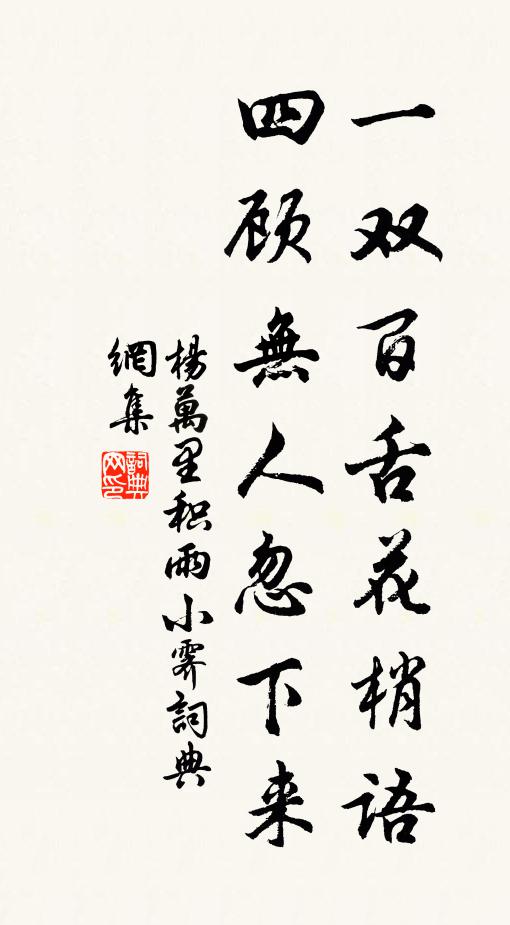 一双百舌花梢語
四顾無人忽下来
楊萬里积雨小霁詞典
網集
詞典
网印